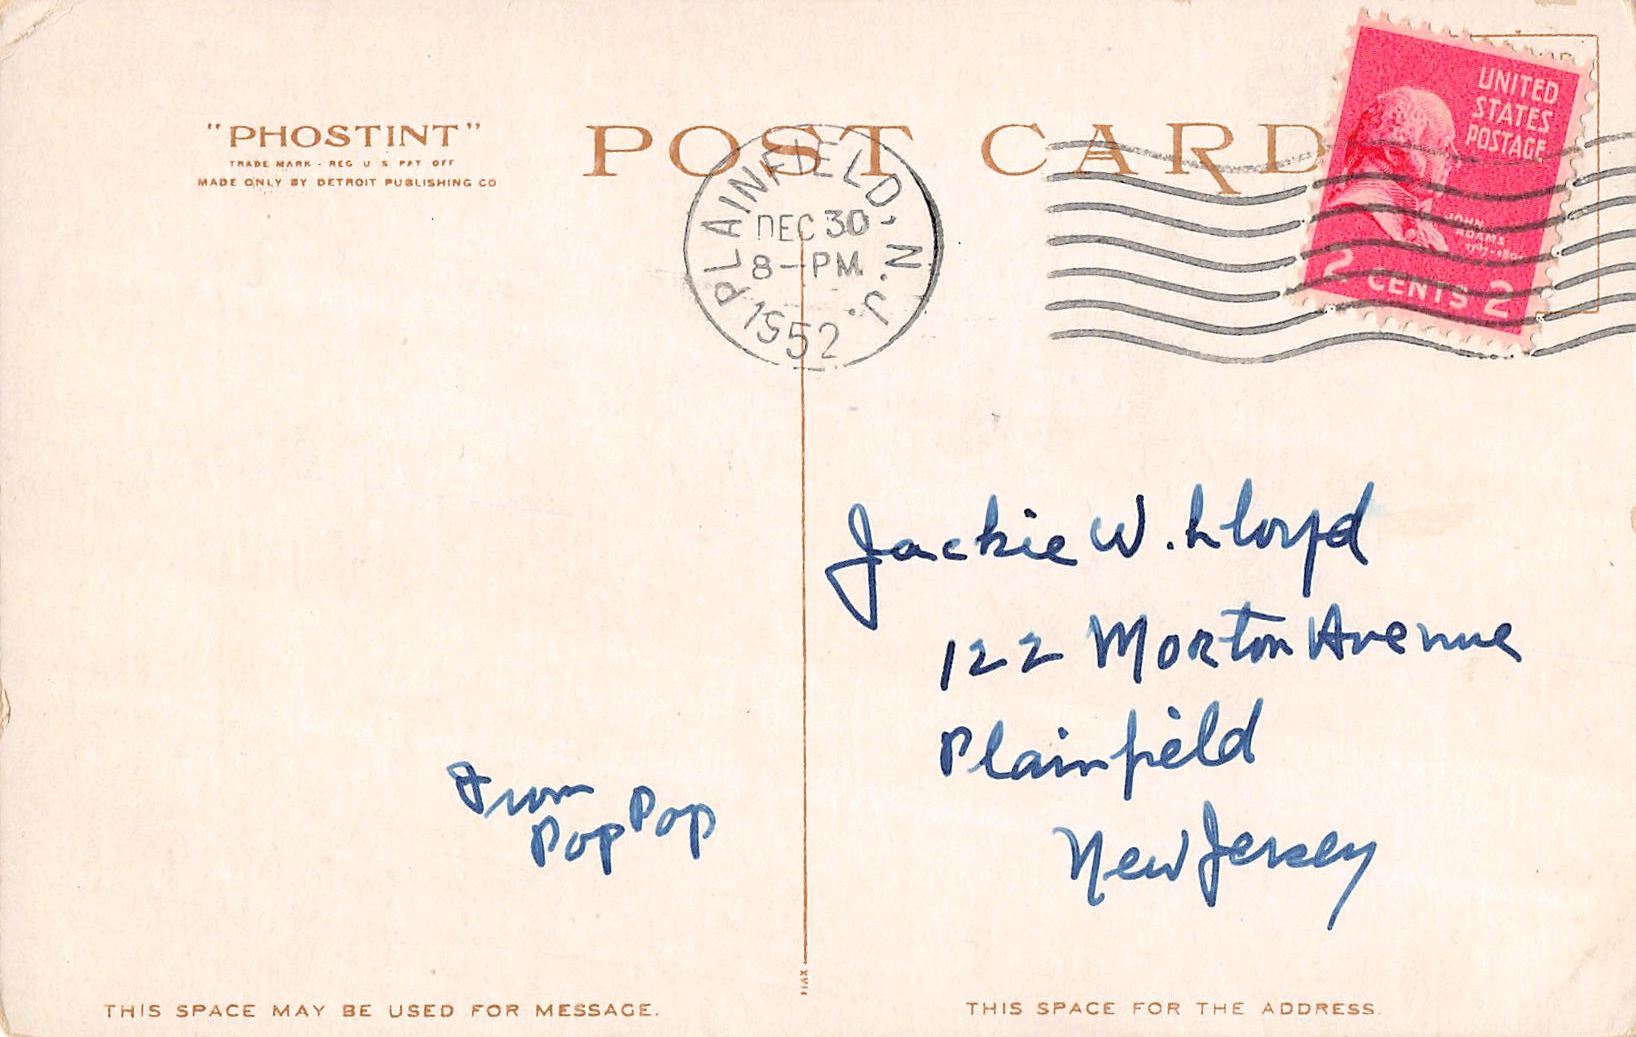 "PHOSTINT"
TRADE MARK - REG U S PAT OFF
MADE ONLY BY DETROIT PUBLISHING CO
POST CARD
PLAINFIELD, N.J.
DEC 30
8-PM
1952
UNITED
STATES
POSTAGE
JOHN
ADAMS
2 CENTS 2
Jackie W. Lloyd
122 Morton Avenue
Plainfield
New Jersey
From
Pop Pop
THIS SPACE MAY BE USED FOR MESSAGE.
THIS SPACE FOR THE ADDRESS.